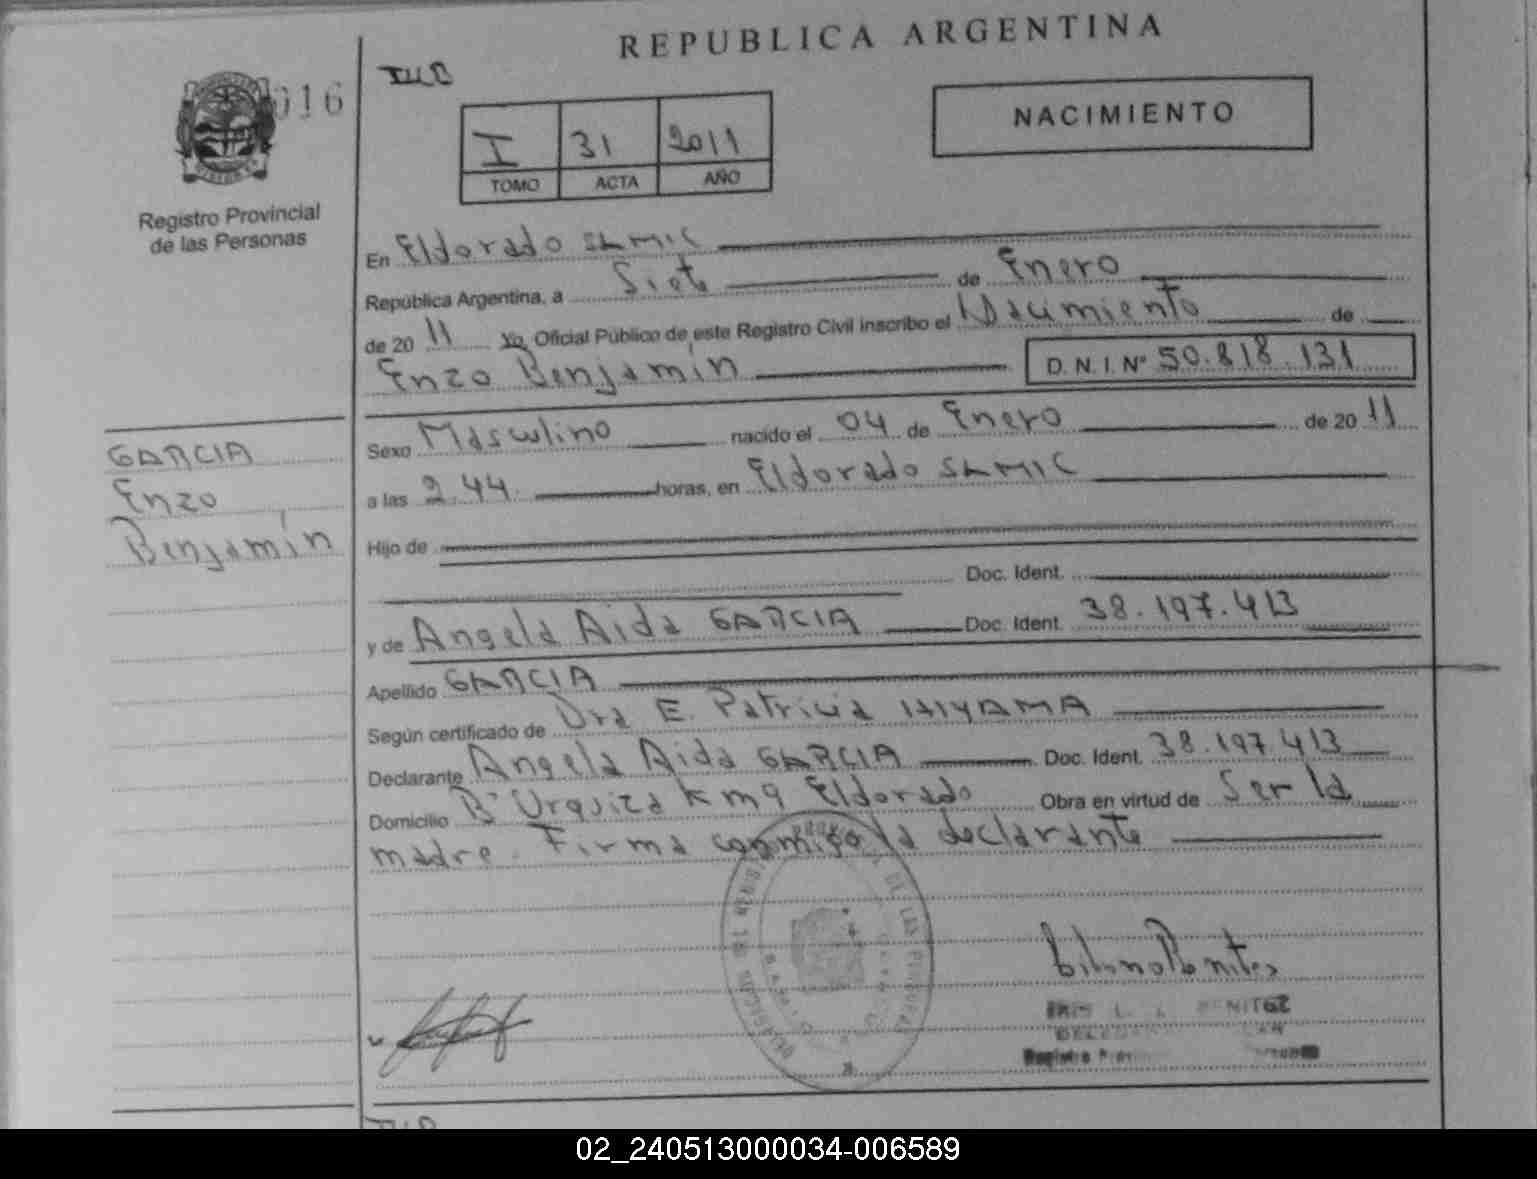 REPUBLICA ARGENTINA
016
I 31 2011
TOMO ACTA AÑO
NACIMIENTO
Registro Provincial
de las Personas
En Eldorado SLMIC
República Argentina, a Siete de Enero
de 20 11 Yo, Oficial Público de este Registro Civil inscribo el Nacimiento de
Enzo Benjamín D.N.I. Nº 50.818.131
GARCIA
Enzo
Benjamín
Sexo Masculino nacido el 04 de Enero de 20 11
a las 2.44. horas, en Eldorado SLMIC
Hijo de
Doc. Ident.
y de Angela Aida GARCIA Doc. Ident. 38.197.413
Apellido GARCIA
Según certificado de Dra E. Patricia HIYAMA
Declarante Angela Aida GARCIA Doc. Ident. 38.197.413
Domicilio Bº Urquiza Km 9 Eldorado Obra en virtud de Ser la
madre. Firma conmigo la declarante
BENITEZ
02_240513000034-006589